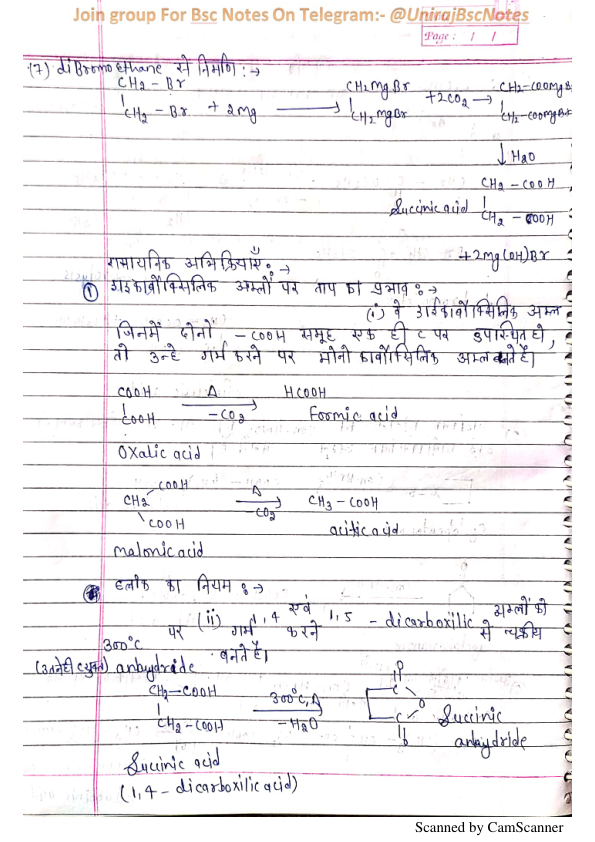 Join group For Bsc Notes On Telegram:- @UnirajBscNotes
Page: / /
(7) diBromoethane से निर्माण :→
CH2 - Br
CH2 - Br + 2Mg ⟶ CH2MgBr
CH2MgBr +2CO2 ⟶ CH2-COOMgBr
CH2-COOMgBr
↓ H2O
CH2 - COOH
Succinic acid CH2 - COOH
+2Mg(OH)Br
रासायनिक अभिक्रियाएँ :→
① डाइकार्बोक्सिलिक अम्लों पर ताप का प्रभाव :→
(i) वे डाईकार्बोक्सिलिक अम्ल
जिनमें दोनों -COOH समूह एक ही C पर उपस्थित हो,
तो उन्हे गर्म करने पर मोनो कार्बोक्सिलिक अम्ल बनते हैं।
COOH Δ HCOOH
COOH -CO2 Formic acid
Oxalic acid
COOH
CH2 Δ CH3 - COOH
-CO2
COOH acitic acid
malonic acid
ब्लांक का नियम :→
(ii) 1,4 एवं 1,5 - dicarboxilic अम्लों को
300°C पर गर्म करने से चक्रीय
anhydride बनते हैं।
CH2-COOH 300°C, Δ C O
CH2-COOH -H2O C O Succinic
O anhydride
Succinic acid
(1,4 - dicarboxilic acid)
Scanned by CamScanner